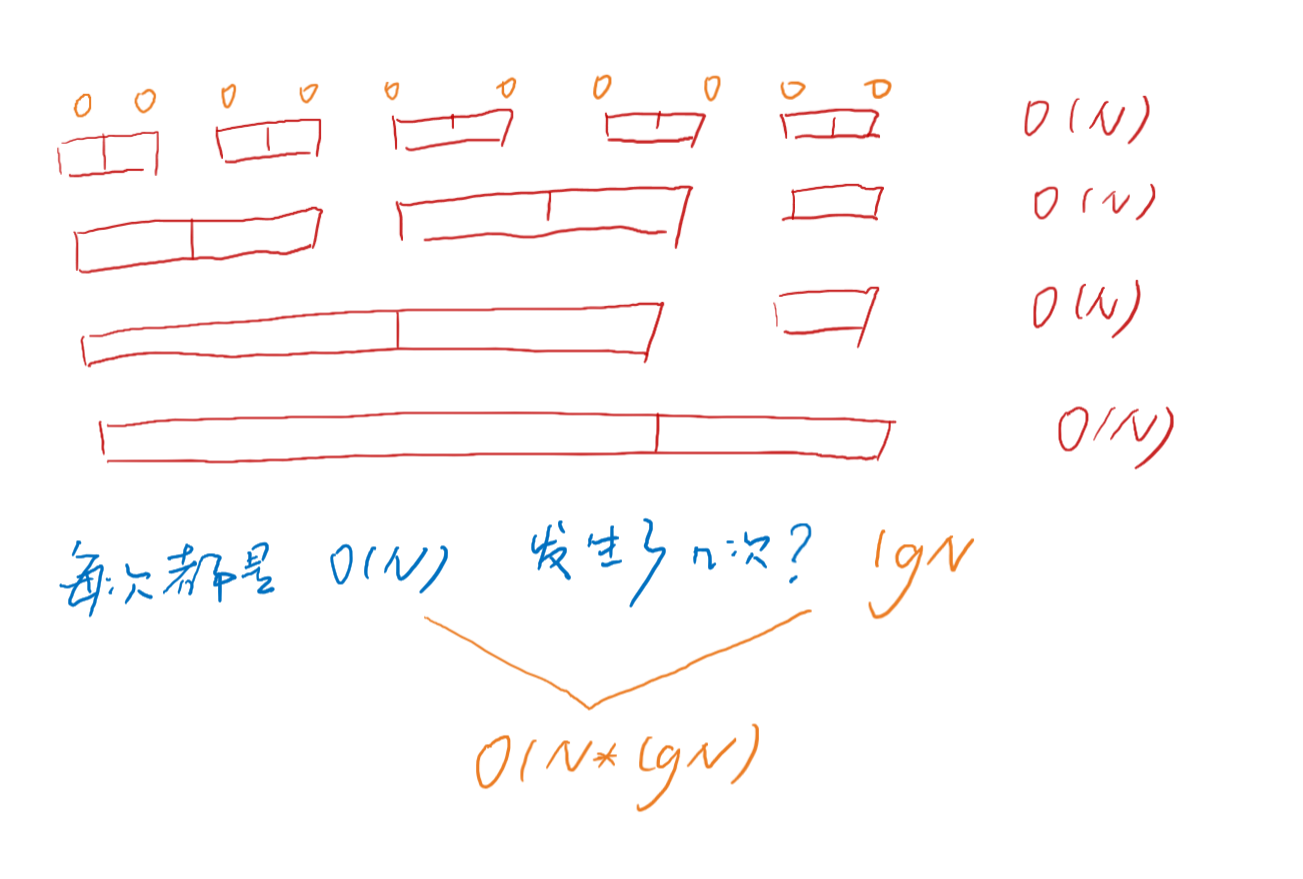 0 0 0 0 0 0 0 0 0 0
O(N)
O(N)
O(N)
O(N)
每次都是 O(N) 发生了n次? lgN
O(N*lgN)